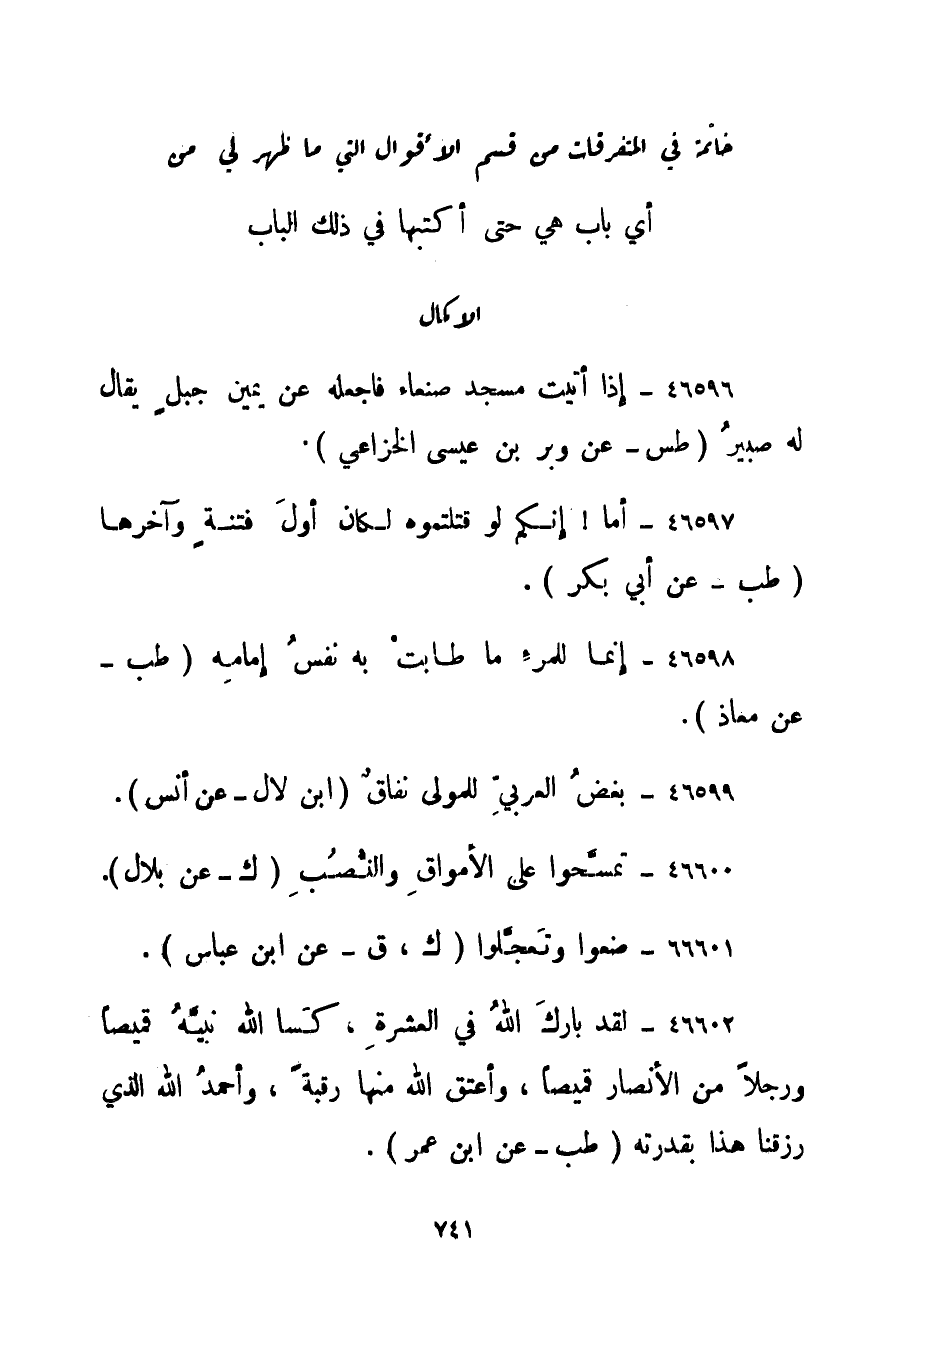 خاتمة في المتفرقات من قسم الأقوال التي ما ظهر لي من
أي باب هي حتى أكتبها في ذلك الباب
الاكمال
٤٦٥٩٦ – إذا أتيت مسجد صنعاء فاجعله عن يمين جبلٍ يقال
له صبيرُ ( طس – عن وبر بن عيسى الخزاعي ) .
٤٦٥٩٧ – أما ! إنكم لو قتلتموه لكان أولَ فتنةٍ وآخرها
( طب – عن أبي بكر ) .
٤٦٥٩٨ – إنما للمرءِ ما طابتْ به نفسُ إمامِه ( طب –
عن معاذ ) .
٤٦٥٩٩ – بغضُ العربيِّ للمولى نفاقٌ ( ابن لال – عن أنس ) .
٤٦٦٠٠ – تمسَّحوا على الأمواقِ والنُّصُبِ ( ك – عن بلال ) .
٦٦٦٠١ – ضعوا وتَعجَّلوا ( ك ، ق – عن ابن عباس ) .
٤٦٦٠٢ – لقد باركَ اللهُ في العشرةِ ، كَسا الله نبيَّهُ قميصاً
ورجلاً من الأنصار قميصاً ، وأعتق الله منها رقبةً ، وأحمدُ الله الذي
رزقنا هذا بقدرته ( طب – عن ابن عمر ) .
٧٤١